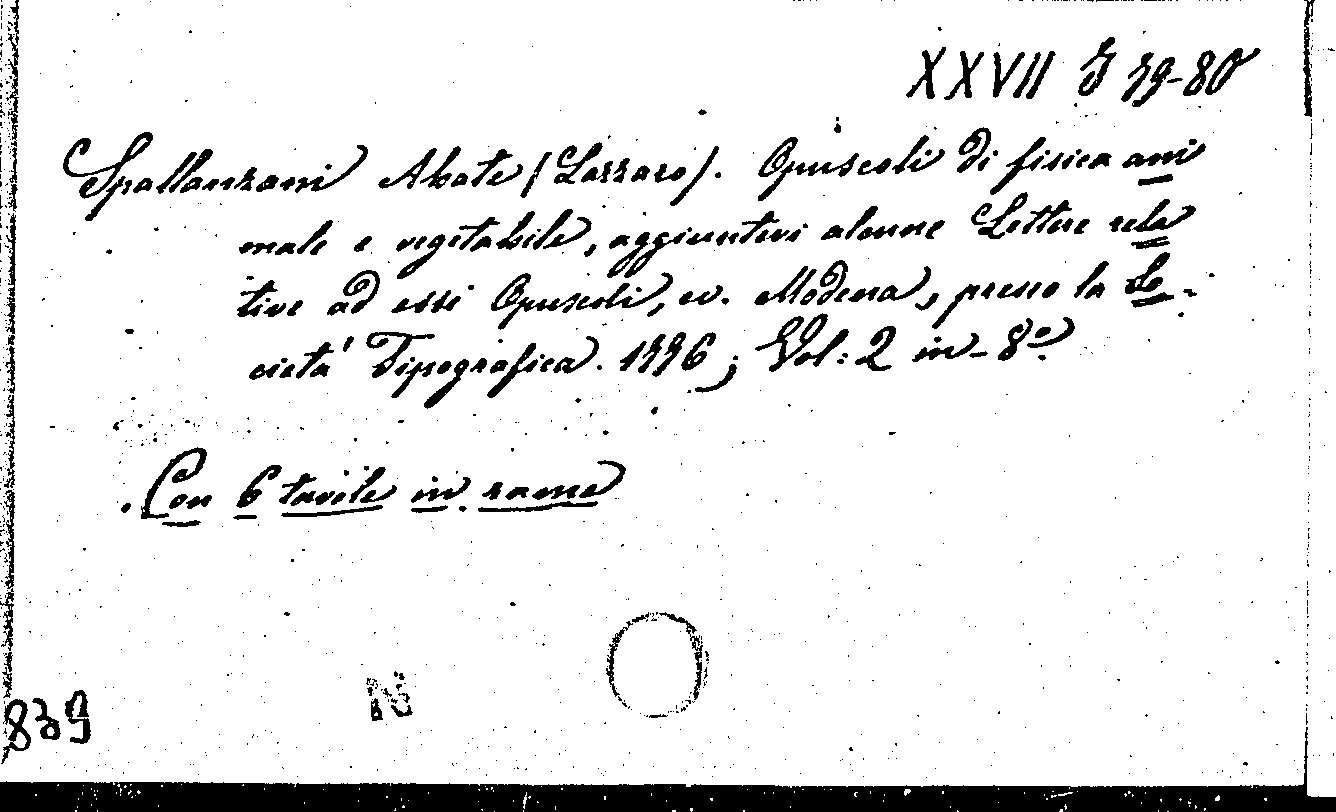 XXVII J 79-80
Spallanzani Abate (Lazzaro). Opuscoli di fisica ani
male e vegetabile, aggiuntevi alcune Lettere rela
tive ad essi Opuscoli, ec. Modena, presso la So-
cietà Tipografica. 1776; Vol: 2 in-8º.
Con 6 tavole in rame
N
839